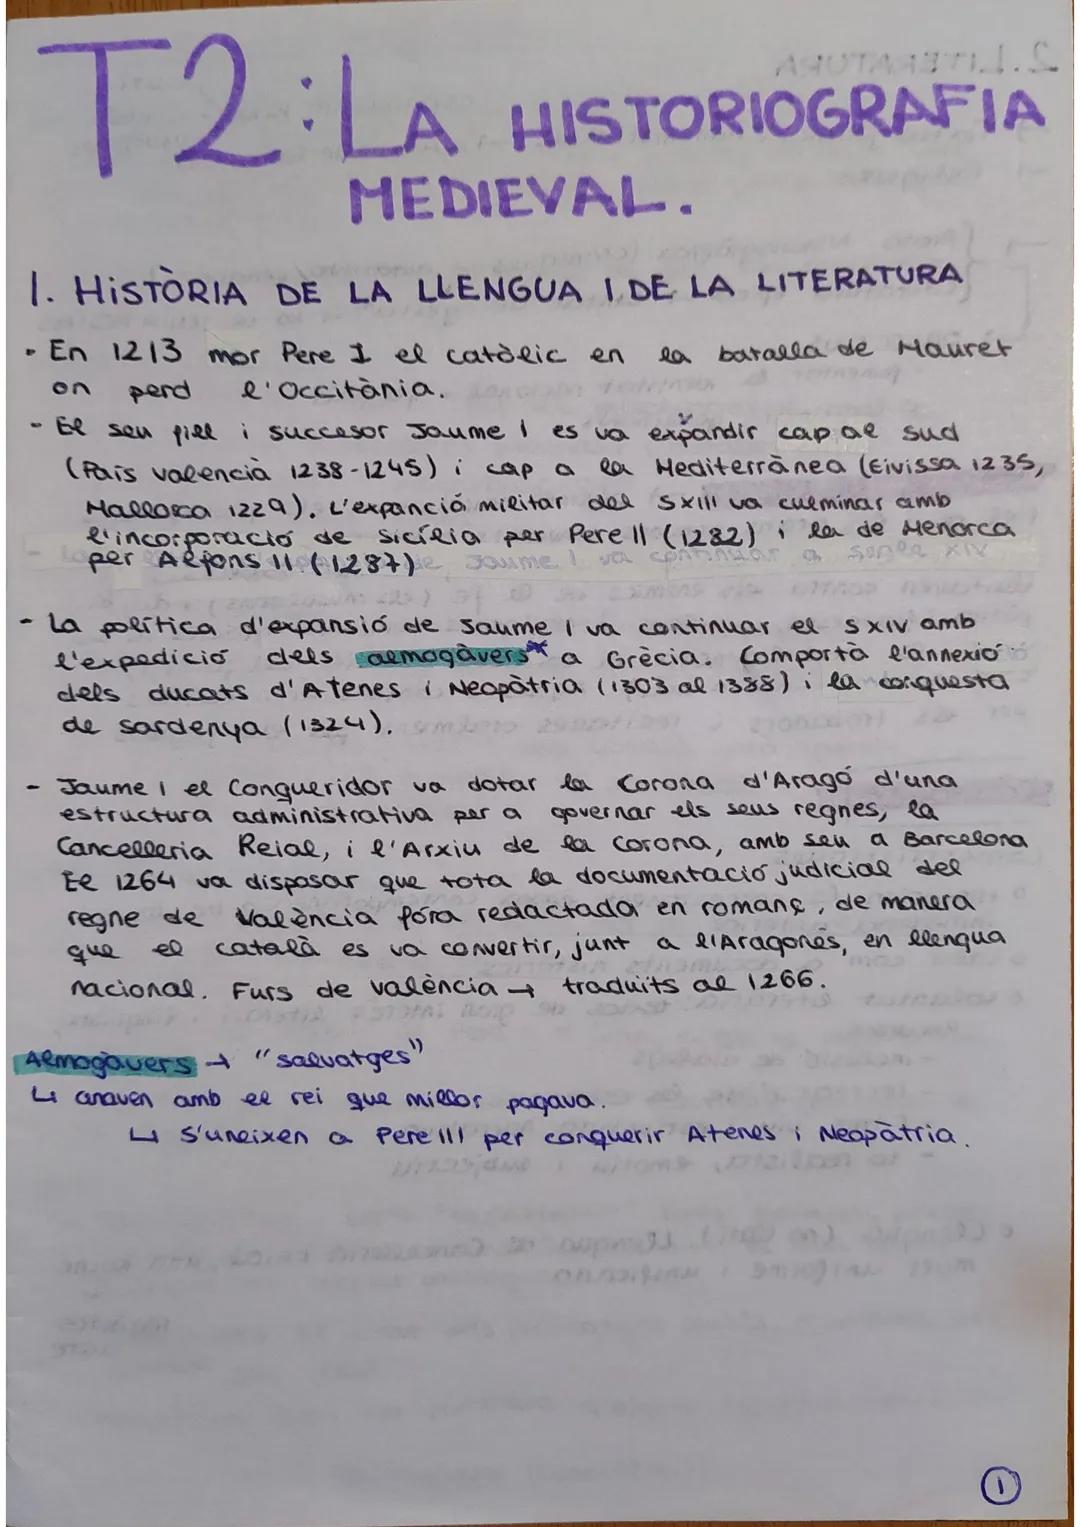 T2: LA HISTORIOGRAFIA
MEDIEVAL.
1. HISTÒRIA DE LA LLENGUA I DE LA LITERATURA
· En 1213 mor Pere I el catòlic en la batalla de Mauret
on perd l'Occitània.
- El seu fill i succesor Jaume I es va expandir cap al sud
(País valencià 1238-1245) i cap a la Mediterrànea (Eivissa 1235,
Mallorca 1229). L'expanció militar del SXIII va culminar amb
l'incorporació de sicília per Pere II (1282) i la de Menorca
per Alfons II (1287)
- La política d'expansió de Jaume I va continuar el SXIV amb
l'expedició dels almogàvers* a Grècia. Comportà l'annexió
dels ducats d'Atenes i Neopàtria (1303 al 1388) i la conquesta
de sardenya (1324).
- Jaume I el Conqueridor va dotar la Corona d'Aragó d'una
estructura administrativa per a governar els seus regnes, la
Cancelleria Reial, i l'Arxiu de la Corona, amb seu a Barcelona
El 1264 va disposar que tota la documentació judicial del
regne de València fóra redactada en romanç, de manera
que el català es va convertir, junt a l'Aragonés, en llengua
nacional. Furs de valència → traduïts al 1266.
Almogàvers → "salvatges"
↳ anaven amb el rei que millor pagava.
↳ S'uneixen a Pere III per conquerir Atenes i Neopàtria.
1